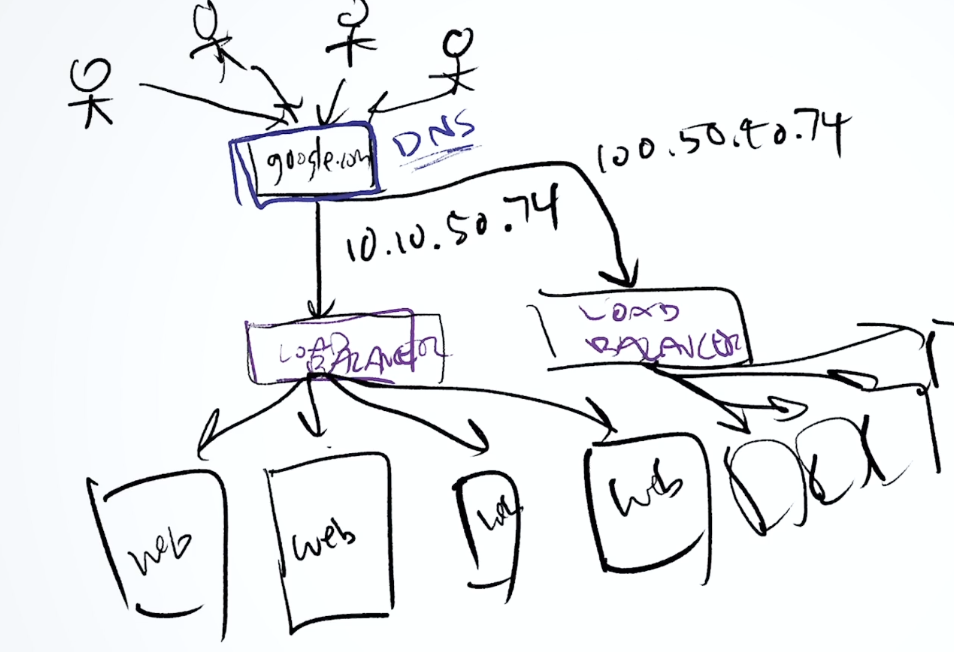 google.com
DNS
100.50.40.74
10.10.50.74
LOAD
BALANCER
LOAD
BALANCER
web
web
web